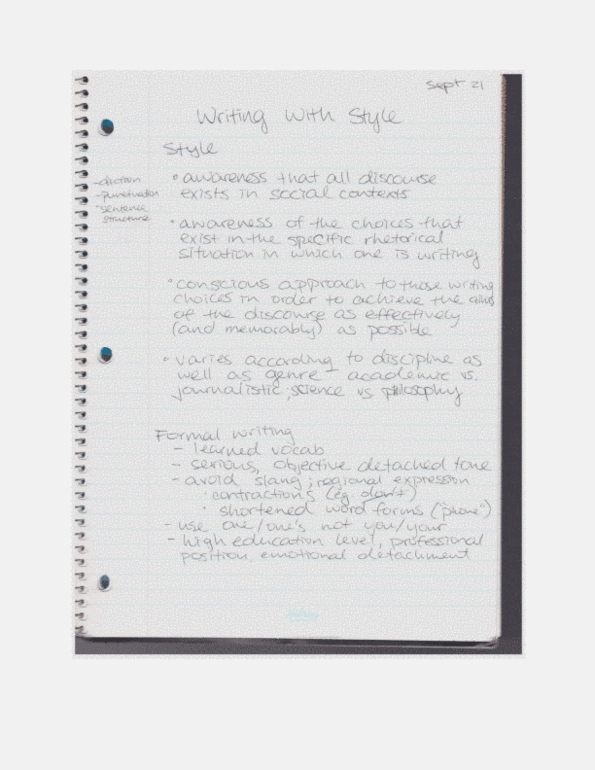 Sept 21
Writing With Style
Style
- diction
- punctuation
- sentence
structure
• awareness that all discourse
exists in social contexts
• awareness of the choices that
exist in the specific rhetorical
situation in which one is writing
• conscious approach to those writing
choices in order to achieve the aims
of the discourse as effectively
(and memorably) as possible
• varies according to discipline as
well as genre - academic vs.
journalistic; science vs philosophy
Formal writing
- learned vocab
- serious, objective detached tone
- avoid slang; regional expression
· contractions (eg don't)
· shortened word forms ("phone")
- use one/one's not you/your
- high education level, professional
position, emotional detachment